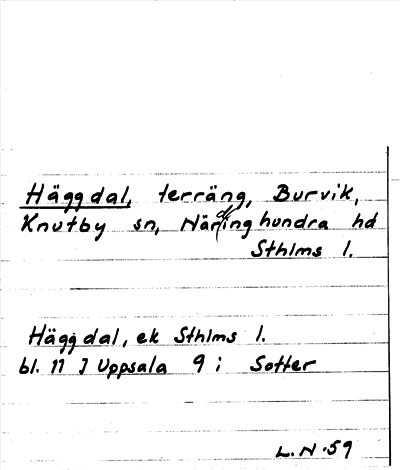 Häggdal, terräng, Burvik,
Knutby sn, Närdinghundra hd
Sthlms l.
Häggdal, ek Sthlms l.
bl. 11 J Uppsala 9 i Sotter
L.N.59